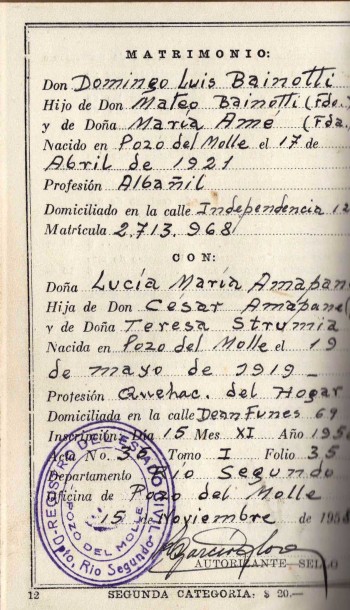 MATRIMONIO:
Don Domingo Luis Bainotti
Hijo de Don Mateo Bainotti (Fdo.)
y de Doña María Amé (Fda.
Nacido en Pozo del Molle el 17 de
Abril de 1921
Profesión Albañil
Domiciliado en la calle Independencia 12
Matrícula 2.713.968
CON:
Doña Lucía María Amapan
Hija de Don César Amapane
y de Doña Teresa Strumia
Nacida en Pozo del Molle el 19
de mayo de 1919
Profesión Quehac. del Hogar
Domiciliada en la calle Dean Funes 69
Inscripción: Día 15 Mes XI Año 195
Acta No. 36 Tomo I Folio 35
Departamento Río Segundo
Oficina de Pozo del Molle
15 de Noviembre de 195
AUTORIZANTE, SELLO
REGISTRO DEL ESTADO CIVIL
POZO DEL MOLLE
Dpto. Río Segundo
12 SEGUNDA CATEGORIA: $ 20.—